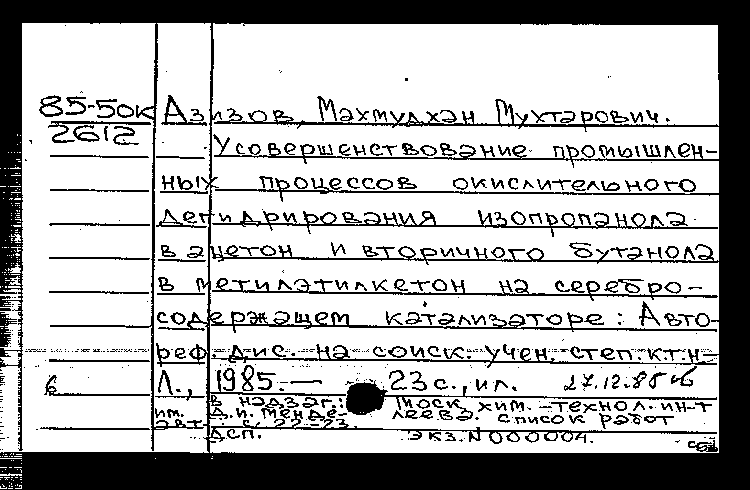 85-50к Азизов, Махмудхан Мухтарович.
2612
Усовершенствование промышлен-
ных процессов окислительного
дегидрирования изопропанола
в ацетон и вторичного бутанола
в метилэтилкетон на серебро-
содержащем катализаторе: Авто-
реф. дис. на соиск. учен. степ. к.т.н.-
Л., 1985. — 23 с., ил. 27.12.85
в надзаг.: Моск. хим.-технол. ин-т
им. Д.И. Менделеева. Список работ
авт.: с. 22-23.
ДСП. Экз. N 000004.